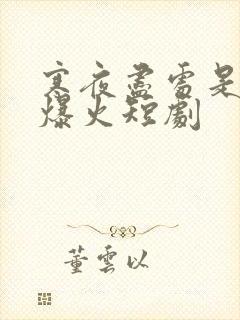 寒夜盡雷是
爆火短劇
董雲以